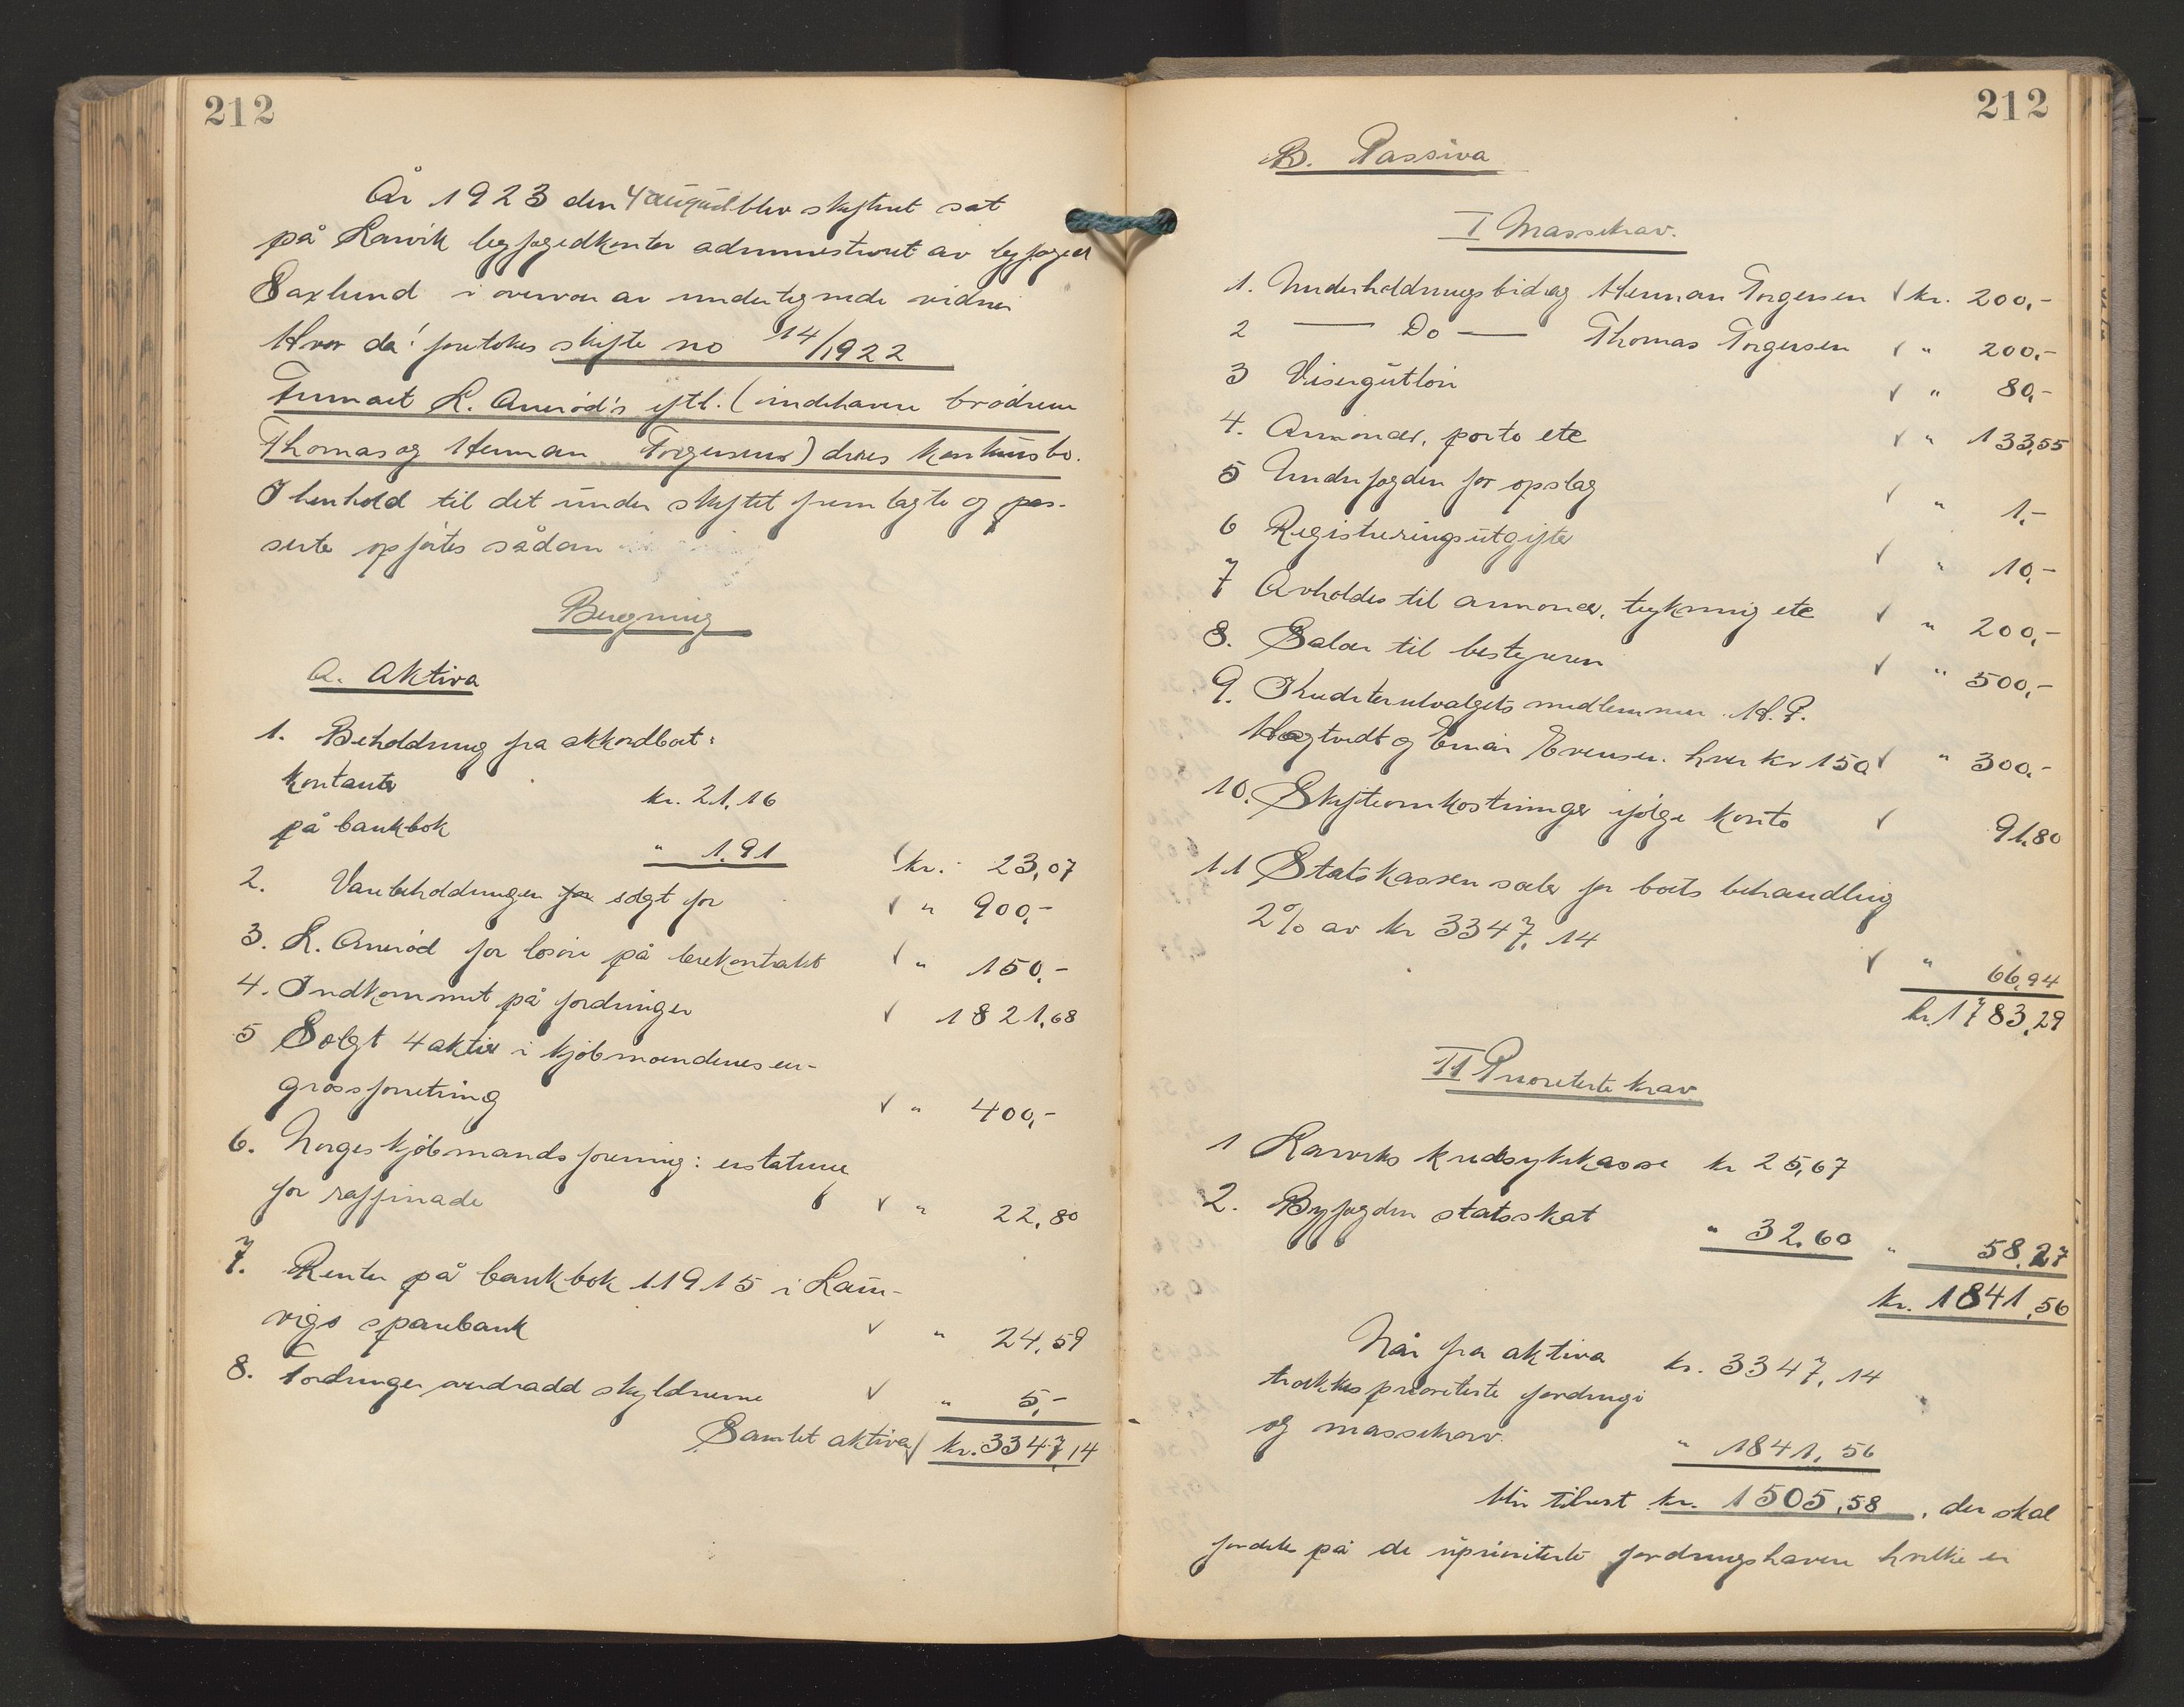 212
År 1923 den 4 august blev skifteret sat
på Larvik byfogedkontor administreret av byfoged
Saxlund i overvær av undertegnede vidner
Hvor da: foretokes skifte no 14/1922
Firmaet L. Amrød's eftl. (indehavere brødrene
Thomas og Herman Torgersens) deres konkursbo.
I henhold til det under skiftet fremlagte og pas-
serte opførtes sådan
Beregning
A. Aktiva
1. Beholdning fra akkordboet:
kontanter kr. 21,16
på bankbok " 1,91 kr. 23,07
2. Varebeholdningen solgt for " 900,-
3. L. Amrød for løsøre på leiekontrakt " 150,-
4. Indkommet på fordringer 1821,68
5 Solgt 4 aktier i kjøbmændenes en-
grosforretning " 400,-
6. Norges kjøbmandsforening: erstatning
for raffinade " 22,80
7. Renter på bankbok 11915 i Laur-
vigs sparebank " 24,59
8. Fordringer overdradd skyldnerne " 5,-
Samlet aktiva kr. 3347,14
212
B. Passiva
I Massekrav.
1. Underholdningsbidrag Herman Torgersen kr. 200,-
2 — Do — Thomas Torgersen " 200,-
3 Visergutløn " 80,-
4. Annoncer, porto etc " 133,55
5 Underfogden for opslag " 1,-
6 Registreringsutgifter " 10,-
7 Avholdes til annoncer, trykning etc " 200,-
8. Salær til bestyreren " 500,-
9. Kreditorutvalgets medlemmer H. P.
Hagtvedt og Einar Evensen. hver kr 150 " 300,-
10. Skifteomkostninger ifølge konto 91,80
11 Statskassen salær for boets behandling
2% av kr 3347,14 " 66,94
kr. 1783,29
II Prioriterte krav
1 Larviks kredssykekasse kr 25,67
2. Byfogden statsskat " 32,60 " 58,27
kr. 1841,56
Når fra aktiva kr. 3347,14
trækkes prioriterte fordringer
og massekrav. " 1841,56
blir tilrest kr. 1505,58, der skal
fordeles på de uprioriterte fordringshavere hvilke er